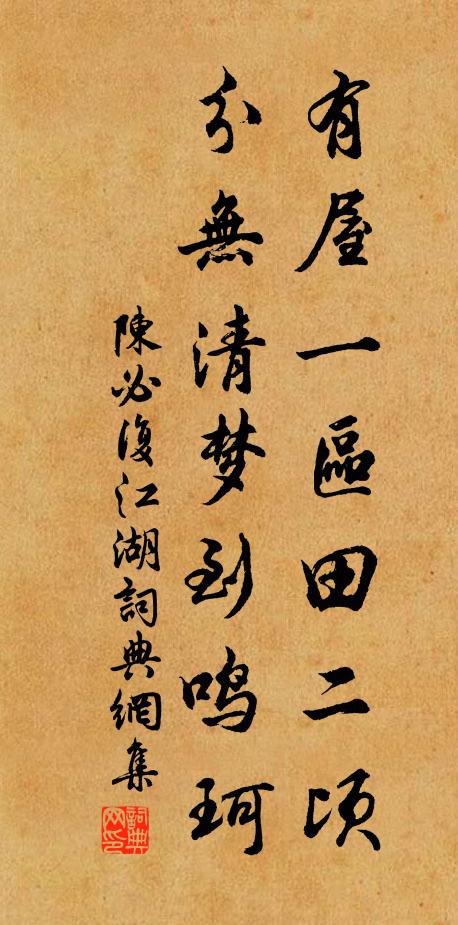 有屋一區田二頃
分無清梦到鸣珂
陳必復江湖詞典網集
詞典網印